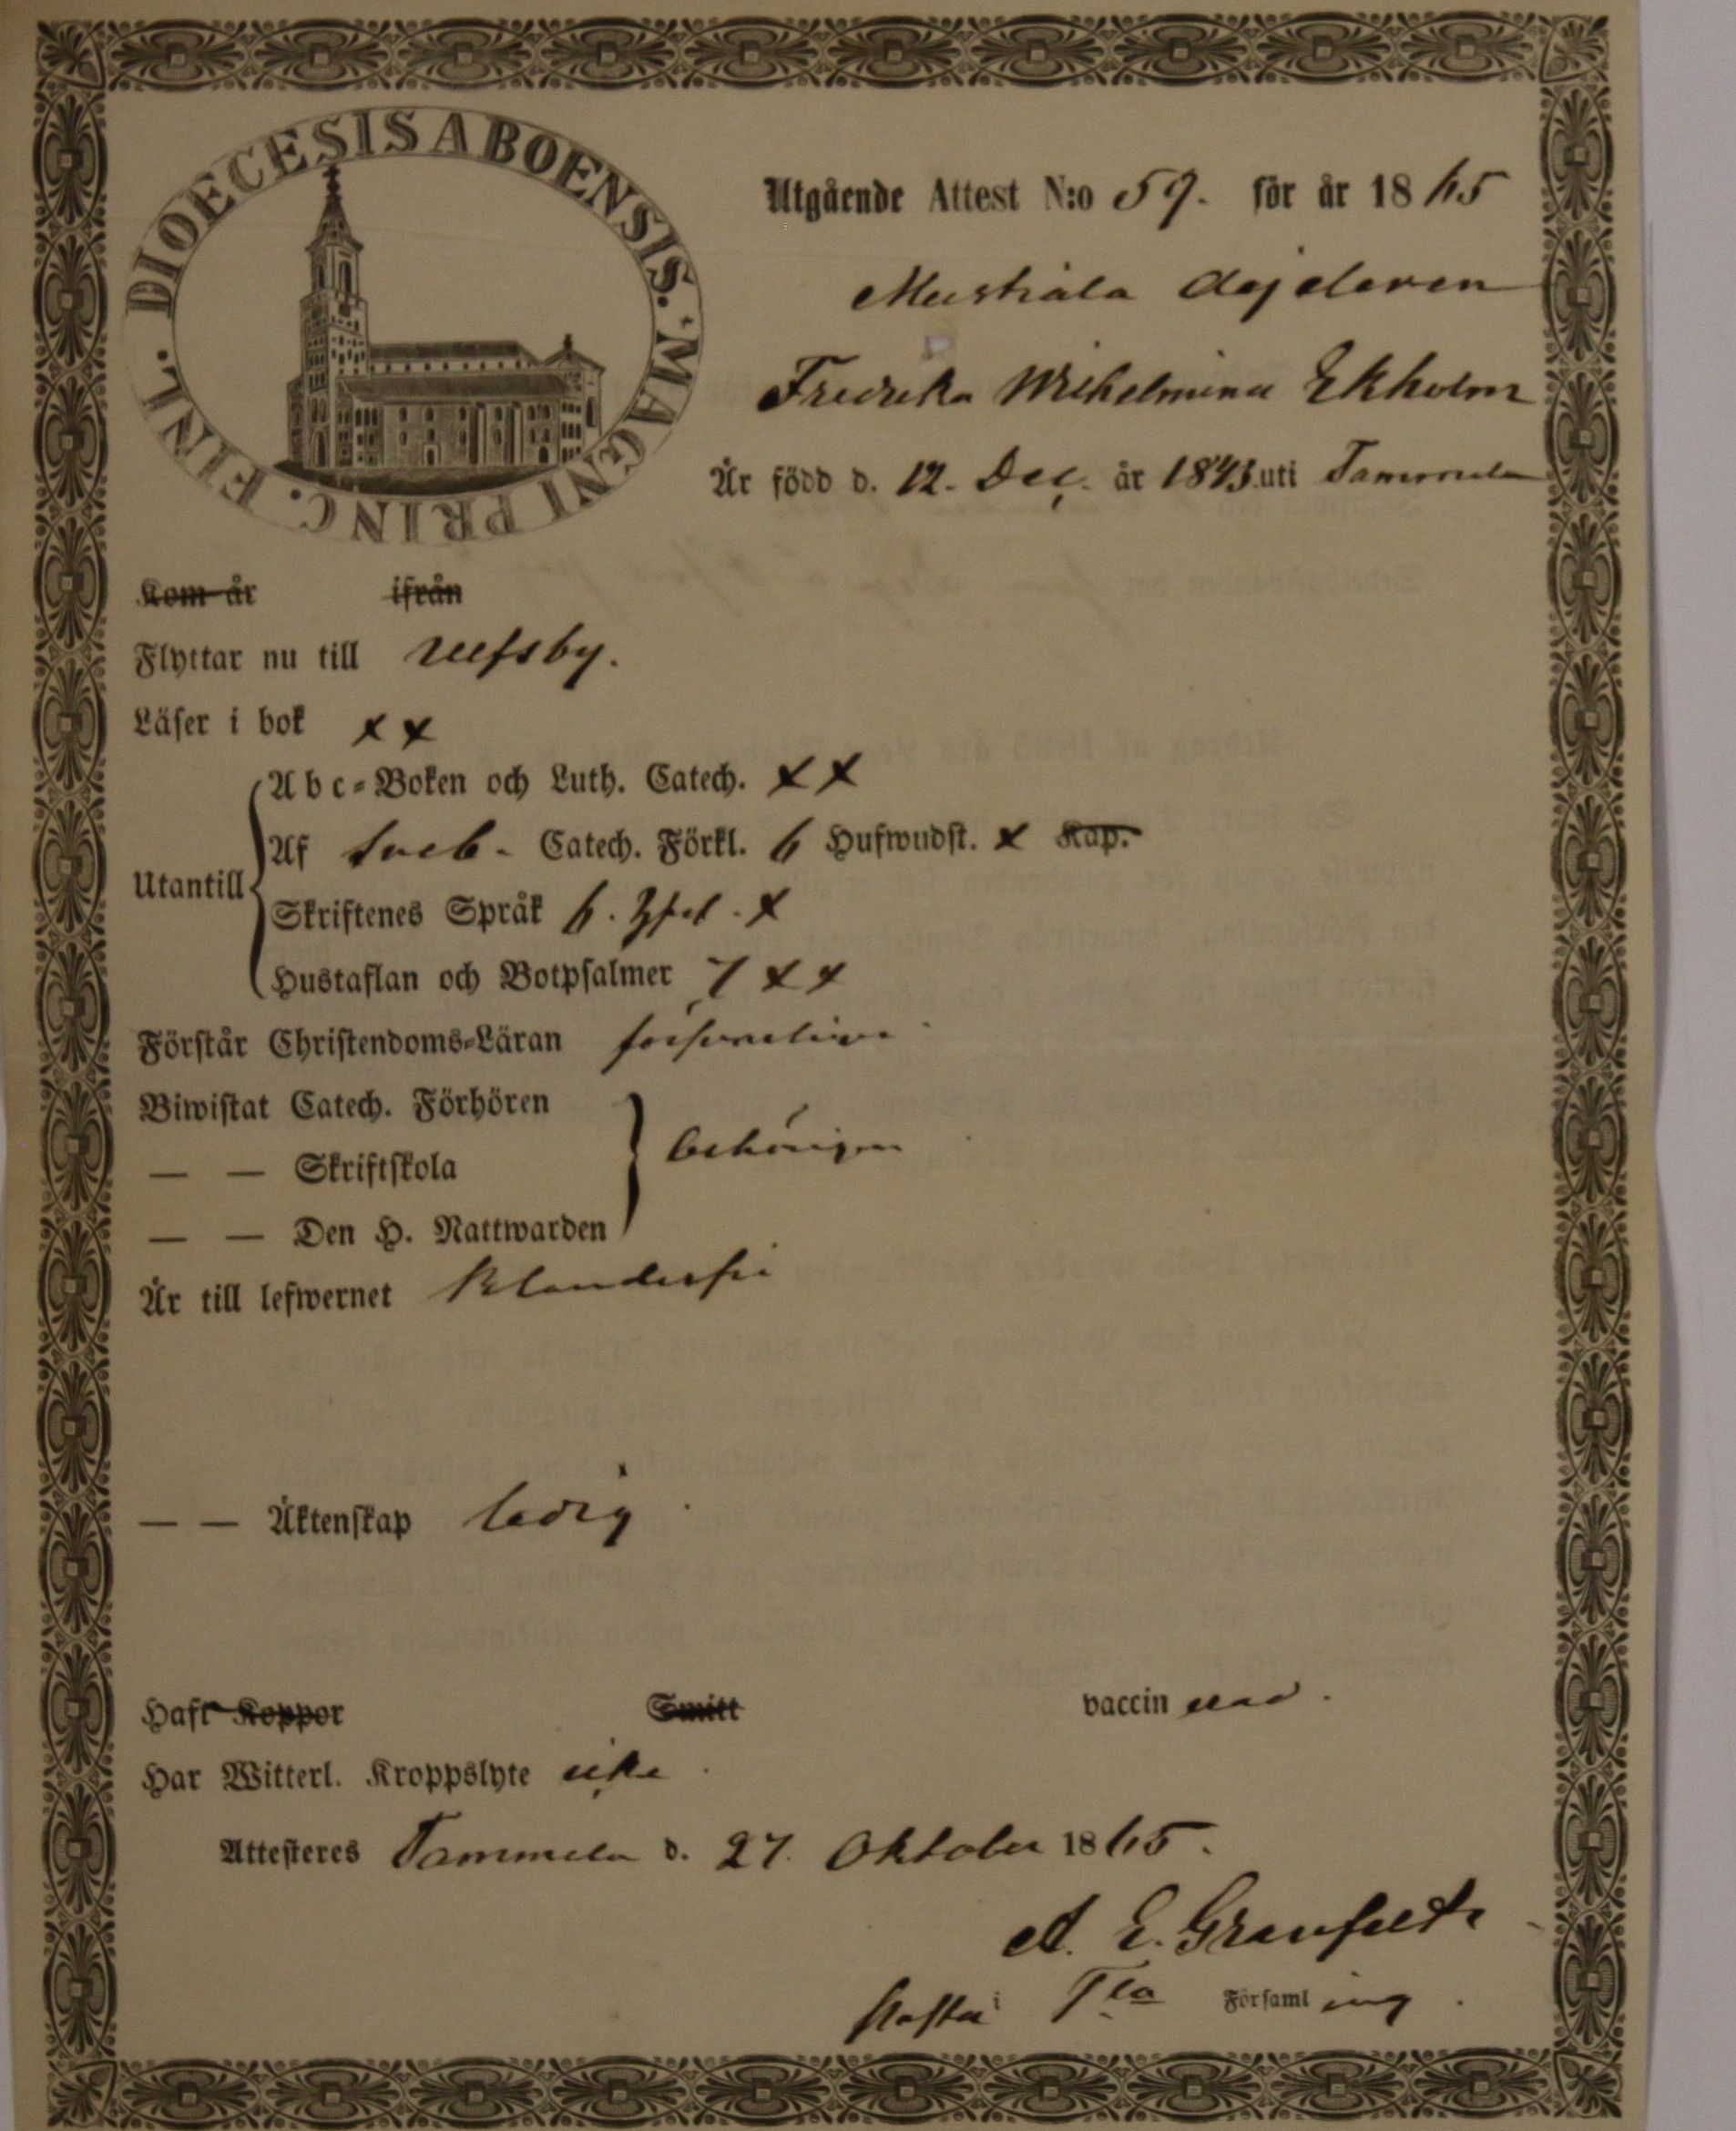 DIOECESIS ABOENSIS. MAGNI PRINC. FINL.
Utgående Attest N:o 59. för år 1865
Mustiala dejeleven
Fredrika Wilhelmina Ekholm
Är född d. 12. Dec. år 1843. uti Tammela
Kom år ifrån
Flyttar nu till Ulfsby.
Läser i bok x x
Utantill
Abc-Boken och Luth. Catech. x x
Af Sveb. Catech. Förkl. 6 Hufwudst. x Kap.
Skriftenes Språk 6. x
Hustaflan och Botpsalmer 7 x x
Förstår Christendoms-Läran försvarligen
Biwistat Catech. Förhören
— — Skriftskola behörigen
— — Den H. Nattwarden
Är till lefwernet klanderfri
— — Äktenskap ledig
Haft Koppor Smitt vaccinerad.
Har Witterl. Kroppslyte icke.
Attesteres Tammela d. 27. Oktober 1865.
A. E. Granfelt
i Tla Församling.